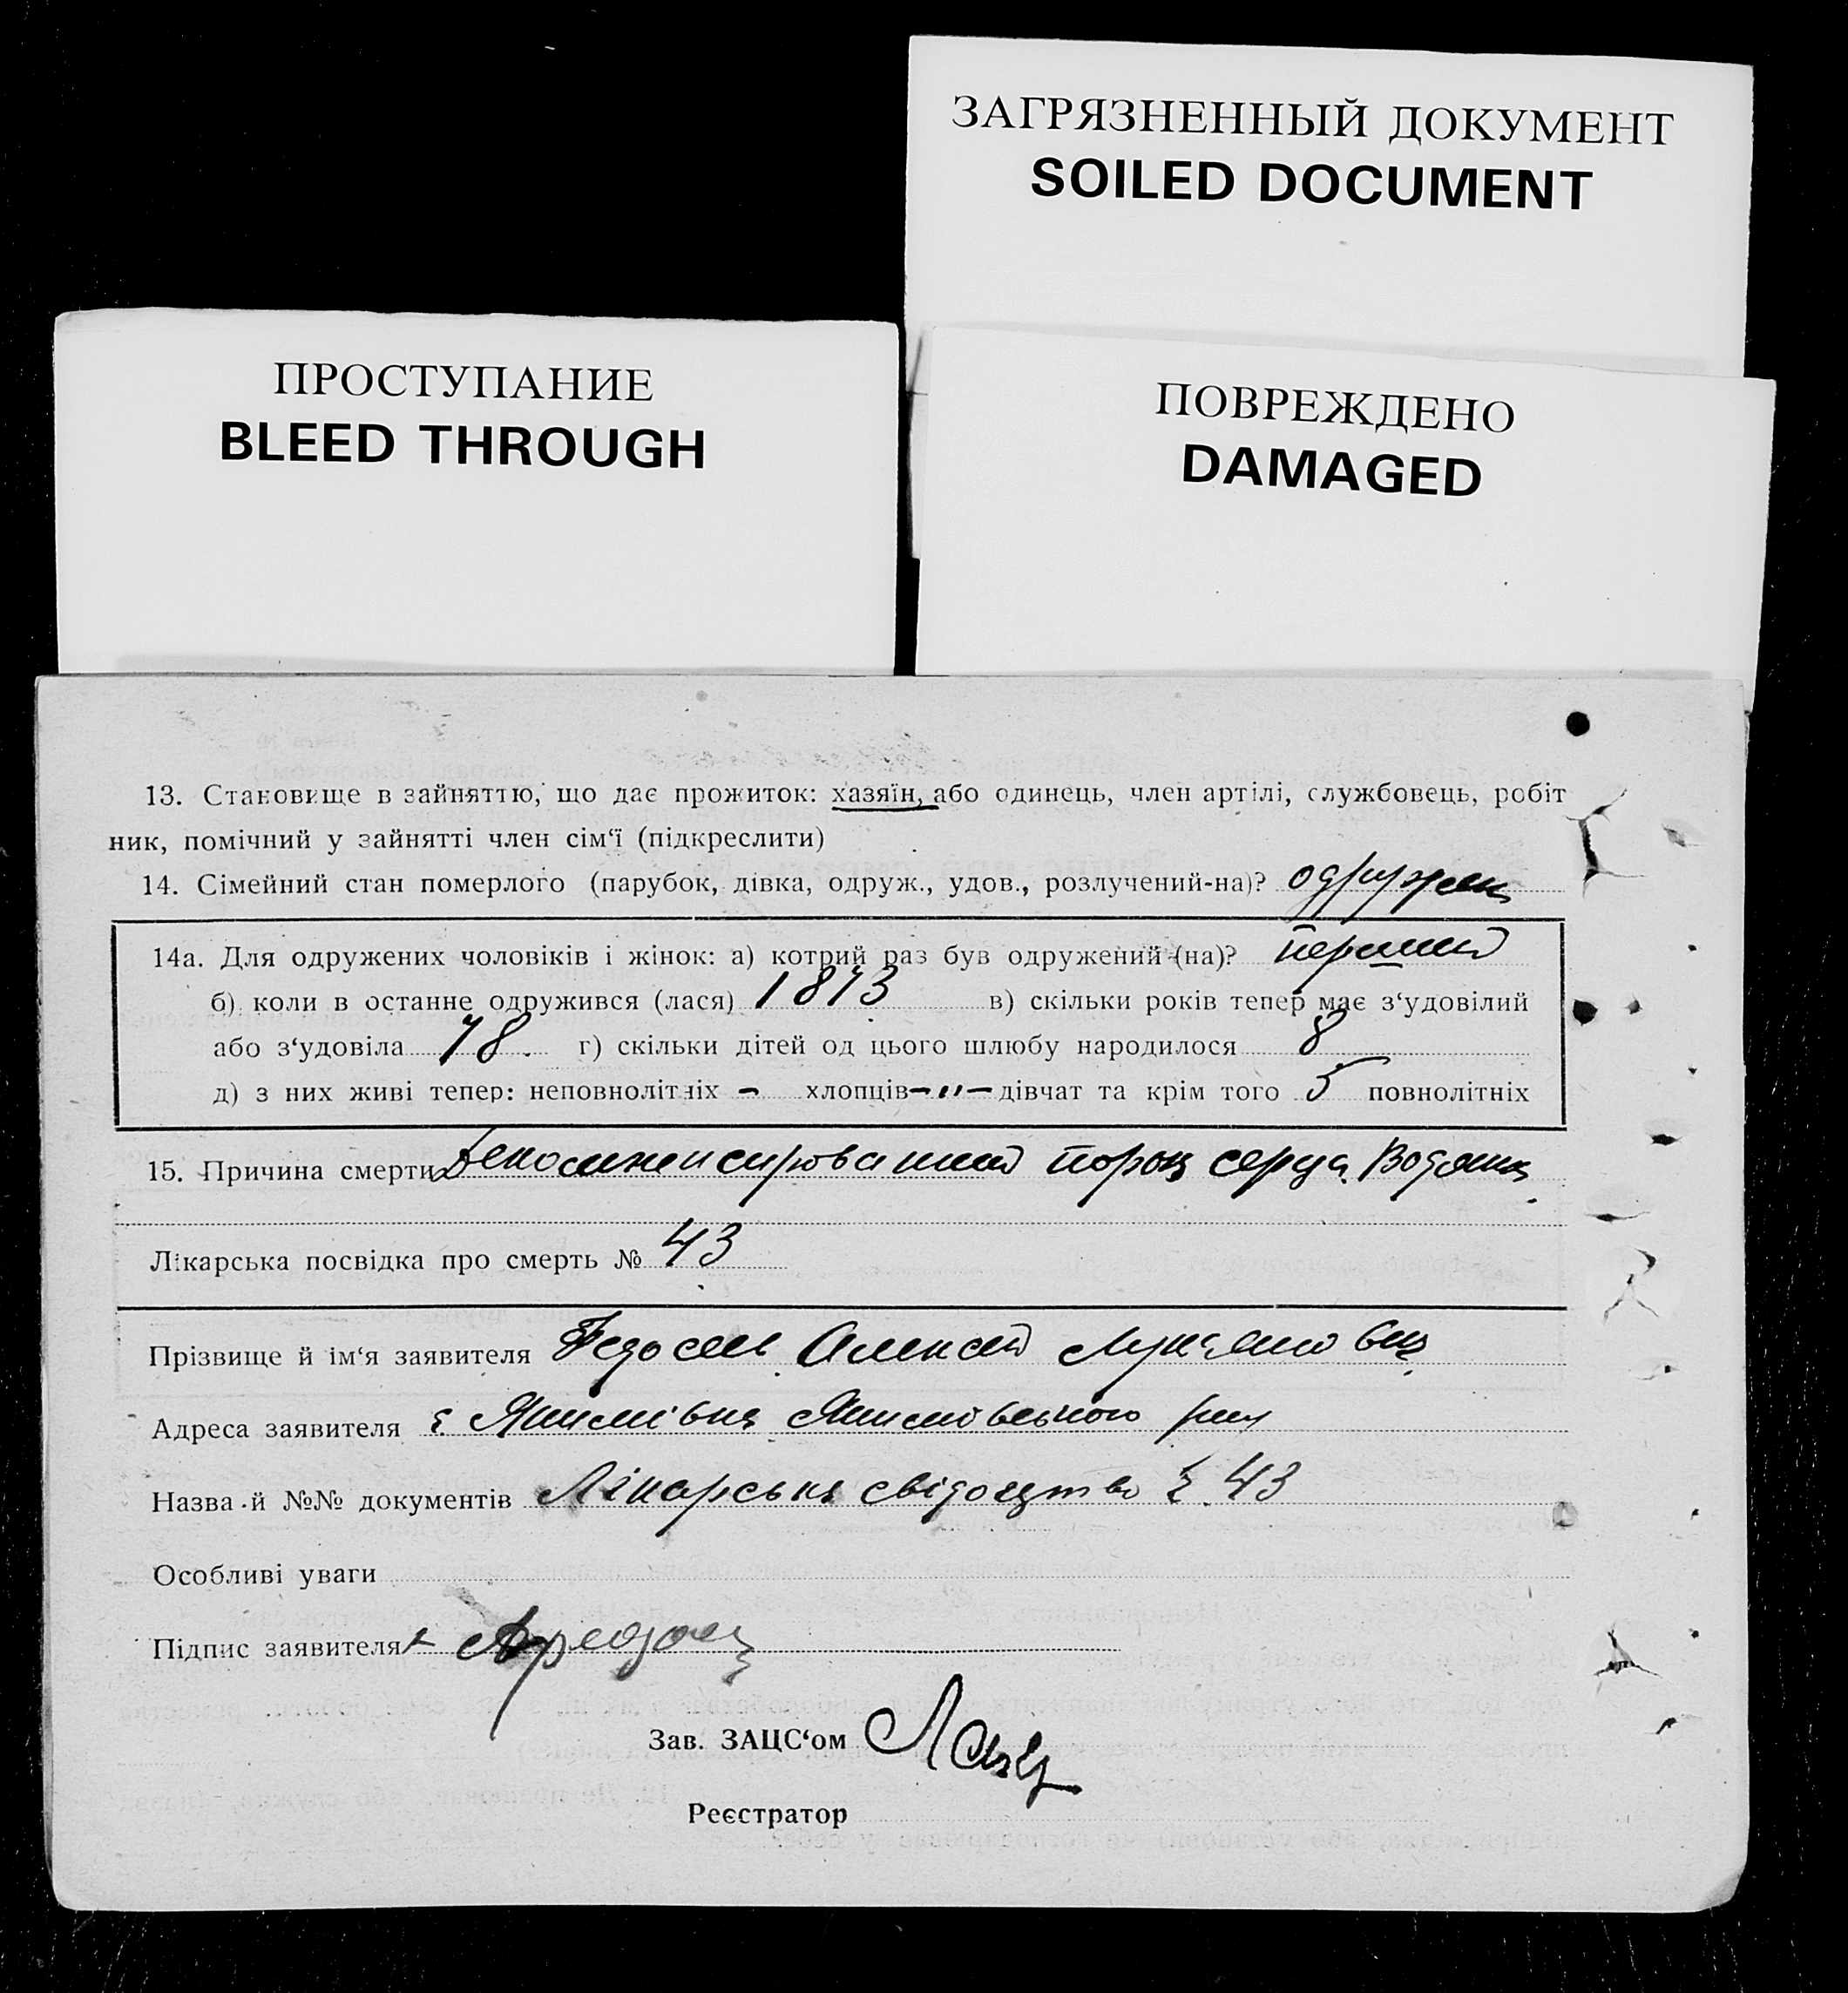 ЗАГРЯЗНЕННЫЙ ДОКУМЕНТ
SOILED DOCUMENT
ПРОСТУПАНИЕ
BLEED THROUGH
ПОВРЕЖДЕНО
DAMAGED
13. Становище в зайняттю, що дає прожиток: хазяїн, або одинець, член артілі, службовець, робіт
ник, помічний у зайнятті член сім‘ї (підкреслити)
14. Сімейний стан померлого (парубок, дівка, одруж., удов., розлучений-на)? одружен
14а. Для одружених чоловіків і жінок: а) котрий раз був одружений-(на)? перший
б) коли в останнє одружився (лася) 1873 в) скільки років тепер має з‘удовілий
або з‘удовіла 78. г) скільки дітей од цього шлюбу народилося 8
д) з них живі тепер: неповнолітніх - хлопців -"- дівчат та крім того 5 повнолітніх
15. Причина смерти Декомпенсированний порок серца. Водянка
Лікарська посвідка про смерть № 43
Прізвище й ім‘я заявителя Алексей
Адреса заявителя с Якимівка Якимовського р-ну
Назва й №№ документів Лікарське свідоцтво 43
Особливі уваги
Підпис заявителя
Зав. ЗАЦС‘ом
Реєстратор